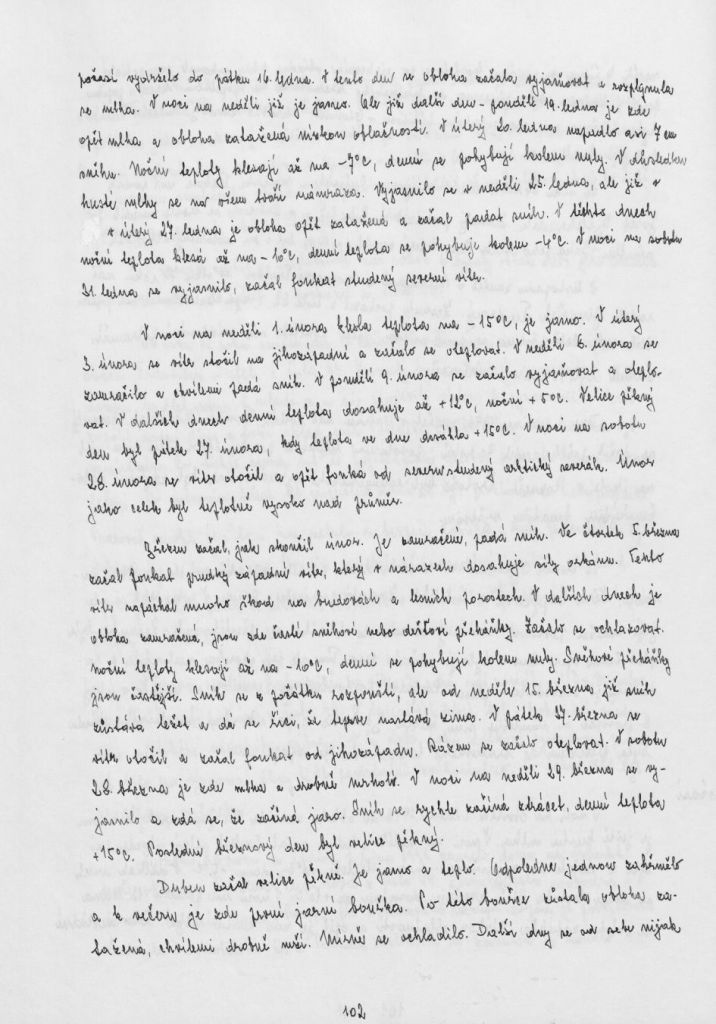 počasí vydrželo do pátku 16. ledna. V tento den se obloha začala vyjasňovat a rozplynula
se mlha. V noci na neděli již je jasno. Ale již další den - pondělí 19. ledna je zde
opět mlha a obloha zatažená nízkou oblačností. V úterý 20. ledna napadlo asi 7 cm
sněhu. Noční teploty klesají až na -7°C, denní se pohybují kolem nuly. V důsledku
husté mlhy se na všem tvoří námraza. Vyjasnilo se v neděli 25. ledna, ale již v
v úterý 27. ledna je obloha opět zatažená a začal padat sníh. V těchto dnech
noční teplota klesá až na -10°C, denní teplota se pohybuje kolem -4°C. V noci na sobotu
31. ledna se vyjasnilo, začal foukat studený severní vítr.
V noci na neděli 1. února klesla teplota na -15°C, je jasno. V úterý
3. února se vítr stočil na jihozápadní a začalo se oteplovat. V neděli 8. února se
zamračilo a chvílemi padá sníh. V pondělí 9. února se začalo vyjasňovat a oteplo-
vat. V dalších dnech denní teplota dosahuje až +12°C, noční +5°C. Velice pěkný
den byl pátek 27. února, kdy teplota ve dne dosáhla +15°C. V noci na sobotu
28. února se vítr otočil a opět fouká od severu studený arktický severák. Únor
jako celek byl teplotně vysoko nad průměr.
Březen začal, jak skončil únor. Je zamračené, padá sníh. Ve čtvrtek 5. března
začal foukat prudký západní vítr, který v nárazech dosahuje síly orkánu. Tento
vítr napáchal mnoho škod na budovách a lesních porostech. V dalších dnech je
obloha zamračená, jsou zde časté sněhové nebo dešťové přeháňky. Začalo se ochlazovat.
Noční teploty klesají až na -10°C, denní se pohybují kolem nuly. Sněhové přeháňky
jsou častější. Sníh se z počátku rozpouští, ale od neděle 15. března již sníh
zůstává ležet a dá se říci, že teprve nastává zima. V pátek 27. března se
vítr otočil a začal foukat od jihozápadu. Rázem se začalo oteplovat. V sobotu
28. března je zde mlha a drobně mrholí. V noci na neděli 29. března se vy-
jasnilo a zdá se, že začíná jaro. Sníh se rychle začíná ztrácet, denní teplota
+15°C. Poslední březnový den byl velice pěkný.
Duben začal velice pěkně. Je jasno a teplo. Odpoledne jednou zahřmělo
a k večeru je zde první jarní bouřka. Po této bouřce zůstala obloha za-
tažená, chvílemi drobně mží. Mírně se ochladilo. Další dny se od sebe nijak
102